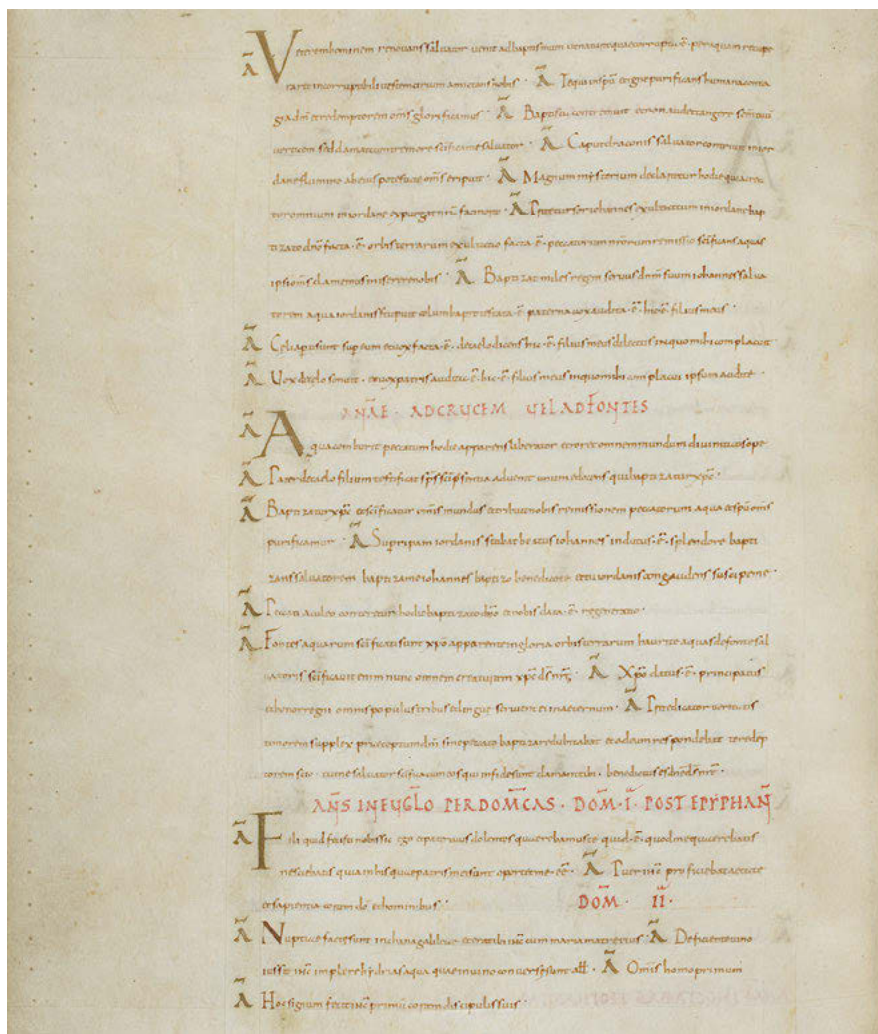 Ā Veterem hominem renovans salvator venit ad baptismum ut naturā quae corrupta ē per aquam recupe
raret incorruptibili veste circum amictans nobis · Ā Te qui in spū et igne purificans humana conta
gia dm̄ et redemptorem om̄s glorificamus · Ā Baptista contremuit et non audet tangere scm̄ dī
verticem sed clamat cum tremore scīfica me salvator · Ā Caput draconis salvator contrivit in ior
dane flumine ab eius potestate om̄s eripuit · Ā Magnum mysterium declaratur hodie quia crea
tor omnium in iordane expurgat nr̄a facinora · Ā Precursor iohannes exultat cum in iordane bap
tizato dn̄o facta · ē · orbis terrarum exultatio facta · ē · peccatorum nr̄orum remissio scīficans aquas
ipsi om̄s clamemus miserere nobis · Ā Baptizat miles regem servus dnm̄ suum iohannes salva
torem aqua iordanis stupuit columba protestata · ē · paterna vox audita · ē · hic · ē · filius meus ·
Ā Celi aperti sunt super eum et vox facta · ē · de caelo dicens hic · ē · filius meus dilectus in quo mihi complacuit
Ā Vox de celo sonuit · et vox patris audita · ē · hic · ē · filius meus in quo mihi complacui ipsum audite ·
ANAE · AD CRUCEM VEL AD FONTES
Ā Aqua comburit peccatum hodie apparens liberator et rorat omnem mundum divinitatis ope
Ā Pater de caelo filium testificat sp̄s scī p̄sentia advenit unum edocens qui baptizatur xp̄c ·
Ā Baptizatur xp̄c et scīficatur om̄is mundus et tribuit nobis remissionem peccatorum aqua et spū om̄s
purificamur · Ā Super ripam iordanis stabat beatus iohannes indutus · ē · splendore bapti
zans salvatorem baptiza me iohannes baptizo benedico te et tu iordanis congaudens suscipe me ·
Ā Peccati aculeus conteretur hodie baptizato dn̄o et nobis data · ē · regeneratio ·
Ā Fontes aquarum scīficati sunt xp̄o apparente in gloria orbis terrarum haurite aquas de fonte sal
vatoris scīficavit enim nunc omnem creaturam xp̄c ds̄ nr̄ · Ā Xp̄o datus · ē · principatus
et honor regni omnis populus tribus et lingue servient ei in aeternum · Ā Predicator veritatis
timorem supplex praeceptum dn̄i sine peccato baptizare dubitabat et ad eum respondebat te redep
torem scio · tu me salvator scīfica
ANS IN EVGLO PER DOMCAS · DOM · I · POST EPYPHAN
Ā Fili quid fecisti nobis sic ego et pater tuus dolentes quaerebamus te quid · ē · quod me quaerebatis
nesciebatis quia in his quae patris mei sunt oportet me · ēē · Ā Puer ihc̄ proficiebat aetate
et sapientia coram dō et hominibus · DOM · II ·
Ā Nuptiae factae sunt in chana galileae et erat ibi ihc̄ cum maria matre eius · Ā Deficiente vino
iussit ihc̄ implere hydrias aqua quae in vino conversę sunt all̄ · Ā Om̄is homo primum
Ā Hoc signum fecit ihc̄ primū coram discipulis suis ·